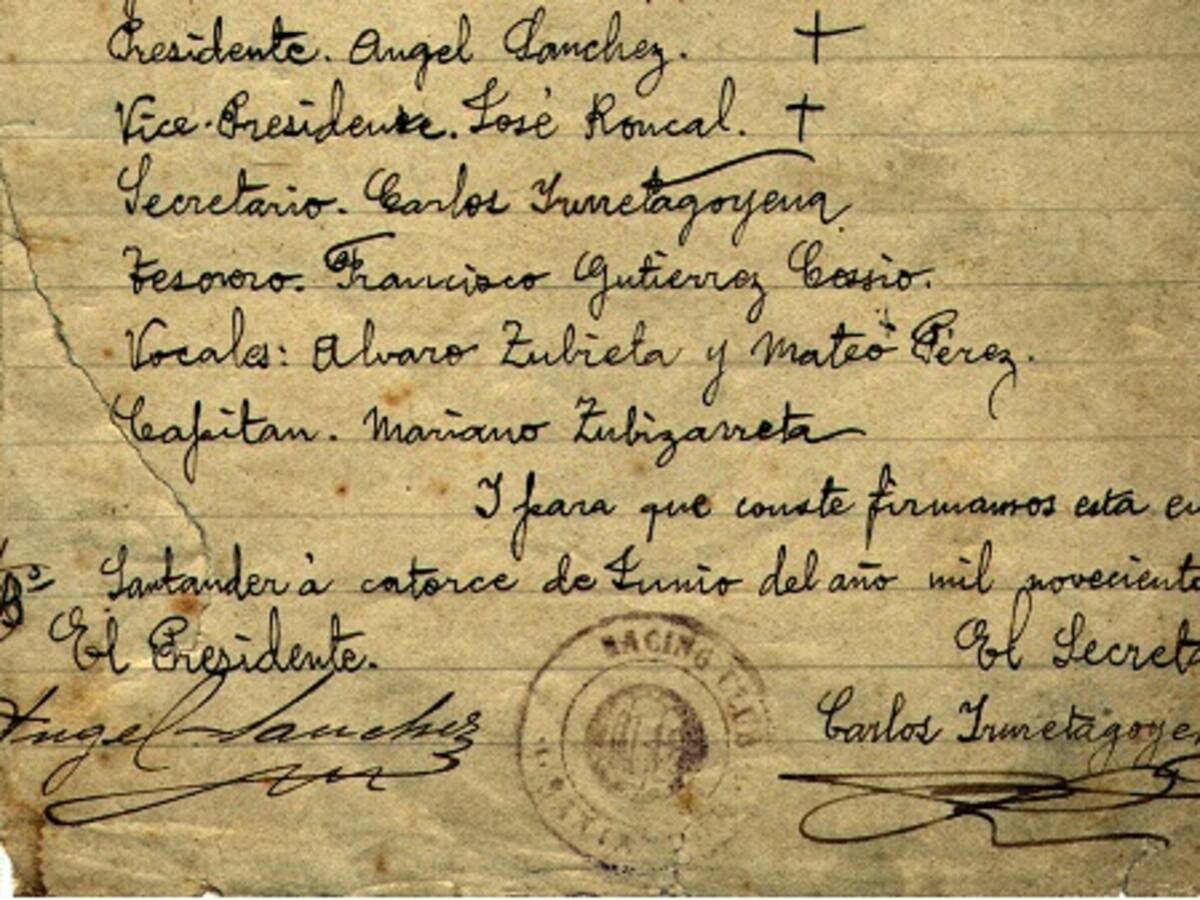 Presidente. Angel Sanchez. +
Vice-Presidente. José Roncal. +
Secretario. Carlos Irurretagoyena
Tesorero. Francisco Gutierrez Cossio.
Vocales: Alvaro Zubieta y Mateo Pérez.
Capitan. Mariano Zubizarreta
I para que conste firmamos esta en
Santander à catorce de Junio del año mil noveciento
El Presidente.
El Secreta
Angel Sanchez
Carlos Iruretagoye
RACING CLUB